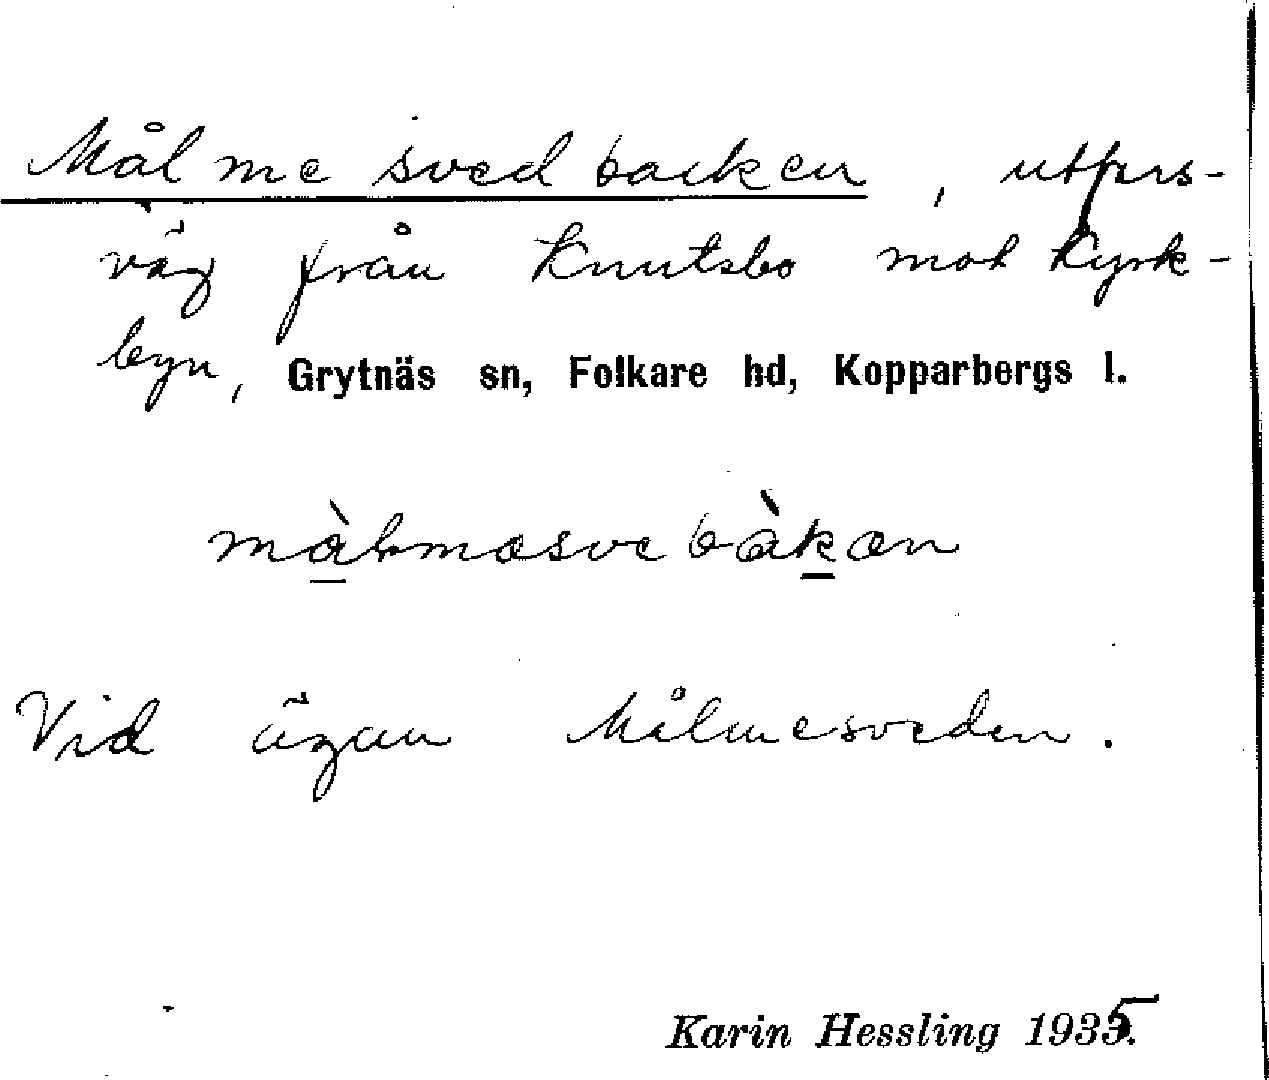 Målmesvedbacken, utförs-
väg från Knutsbo mot Kyrk-
byn, Grytnäs sn, Folkare hd, Kopparbergs l.
Vid ägan Målmesveden.
Karin Hessling 1935.